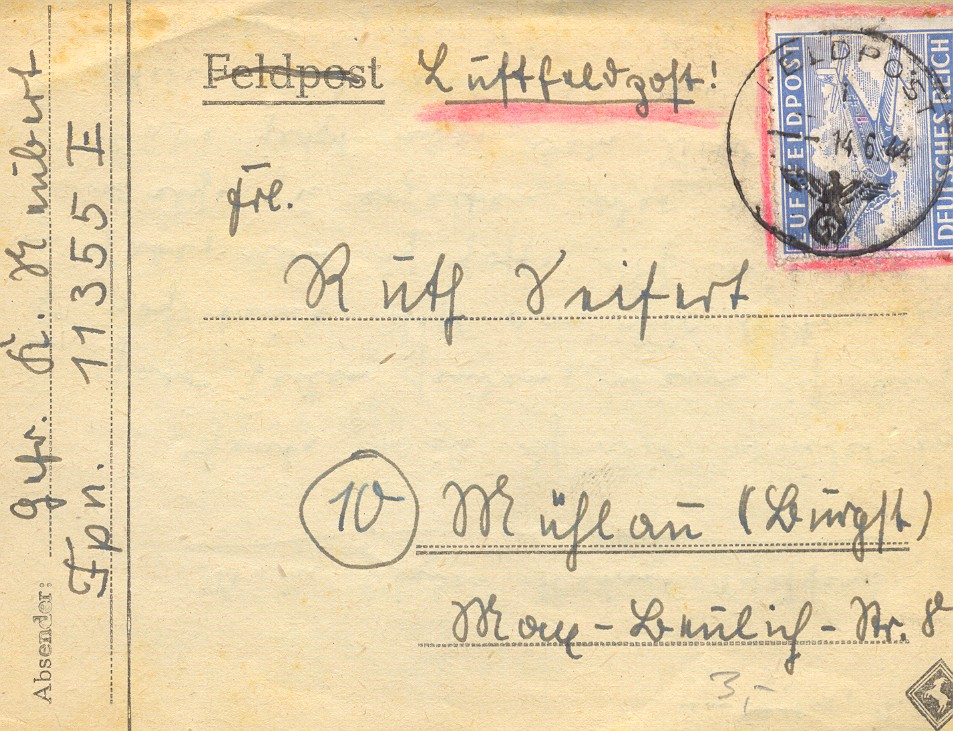 Feldpost Luftfeldpost!
LUFTFELDPOST
DEUTSCHES REICH
FELDPOST
14.6.44
Frl.
Ruth Seifert
10 Mühlau (Burgst)
Max-Beulich-Str. 8
3,-
Absender: Gefr. Neubert
Fpn. 11355 E